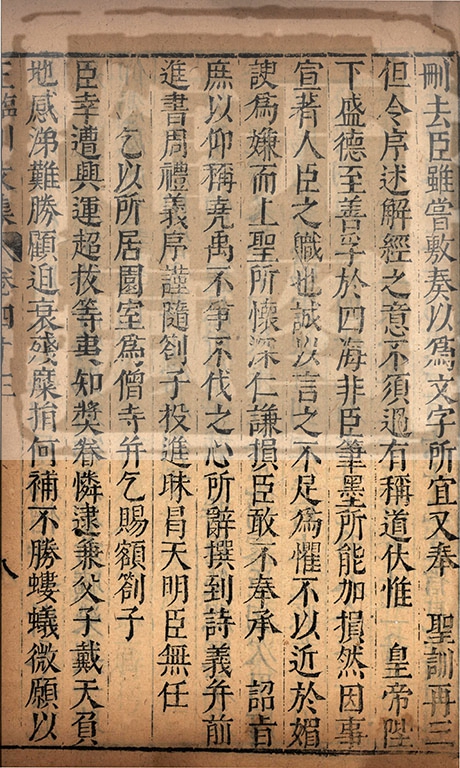 刪去臣雖嘗敷奏以爲文字所宜又奉 聖訓再三
但令序述解經之意不須過有稱道伏惟 皇帝陛
下盛德至善孚於四海非臣筆墨所能加損然因事
宣著人臣之職也誠以言之不足爲懼不以近於媚
諛爲嫌而上聖所懷深仁謙損臣敢不奉承 詔旨
庶以仰稱堯禹不爭不伐之心所辭撰到詩義并前
進書周禮義序謹隨劄子投進昧冒天明臣無任
乞以所居園室爲僧寺并乞賜額劄子
臣幸遭興運超拔等夷知奬眷憐逮兼父子戴天負
地感涕難勝顧迫衰殘糜捐何補不勝螻蟻微願以
王臨川文集 卷四十三 八